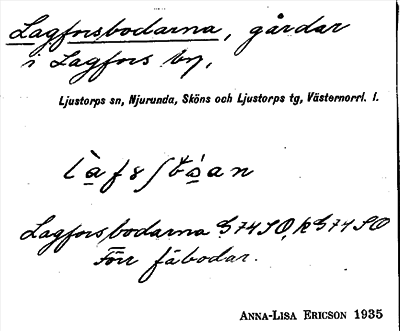 Lagforsbodarna, gårdar
i Lagfors by,
Ljustorps sn, Njurunda, Sköns och Ljustorps tg, Västernorrl. l.
Lagforsbodarna G74SO, k G74SO
Förr fäbodar.
ANNA-LISA ERICSON 1935